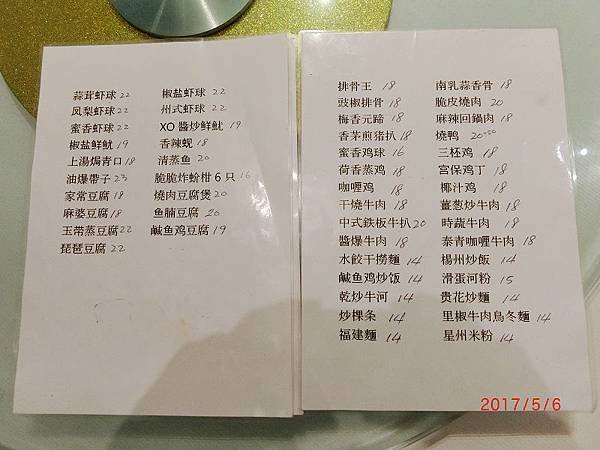 蒜茸虾球 22 椒盐虾球 22
凤梨虾球 22 州式虾球 22
蜜香虾球 22 XO醬炒鮮魷 19
椒盐鮮魷 19 香辣蚬 18
上湯焗青口 18 清蒸鱼 20
油爆帶子 23 脆脆炸蚧柑6只 16
家常豆腐 18 燒肉豆腐煲 20
麻婆豆腐 18 鱼腩豆腐 20
玉带蒸豆腐 22 鹹鱼鸡豆腐 19
琵琶豆腐 22
排骨王 18 南乳蒜香骨 18
豉椒排骨 18 脆皮燒肉 20
梅香元蹄 18 麻辣回鍋肉 18
香茅煎猪扒 18 燒鴨 20
蜜香鸡球 16 三杯鸡 18
荷香蒸鸡 18 宫保鸡丁 18
咖喱鸡 18 椰汁鸡 18
干燒牛肉 18 薑葱炒牛肉 18
中式鉄板牛扒 20 時蔬牛肉 18
醬爆牛肉 18 泰青咖喱牛肉 18
水餃干撈麵 14 楊州炒飯 14
鹹鱼鸡炒饭 14 滑蛋河粉 15
乾炒牛河 14 贵花炒麵 14
炒棵条 14 里椒牛肉烏冬麵 14
福建麵 14 星州米粉 14
2017/5/6